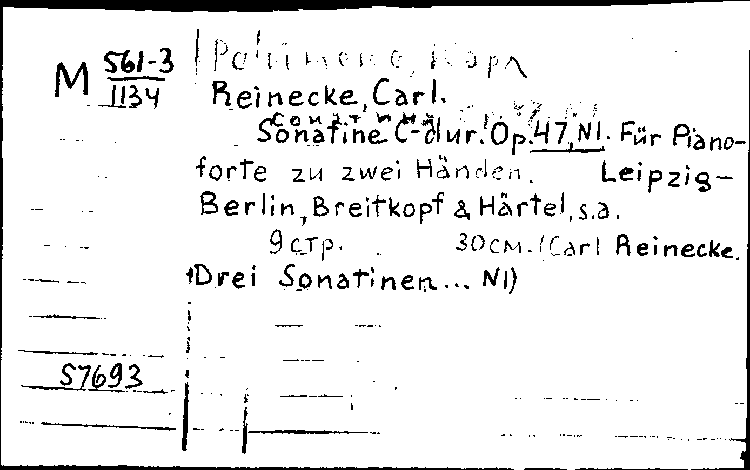 M 561-3
1134
Reinecke, Carl.
Сонатина
Sonatine C-dur. Op. 47, N1. Für Piano-
forte zu zwei Händen. Leipzig-
Berlin, Breitkopf & Härtel, s.a.
9 стр. 30 см. (Carl Reinecke.
Drei Sonatinen... N1)
57693